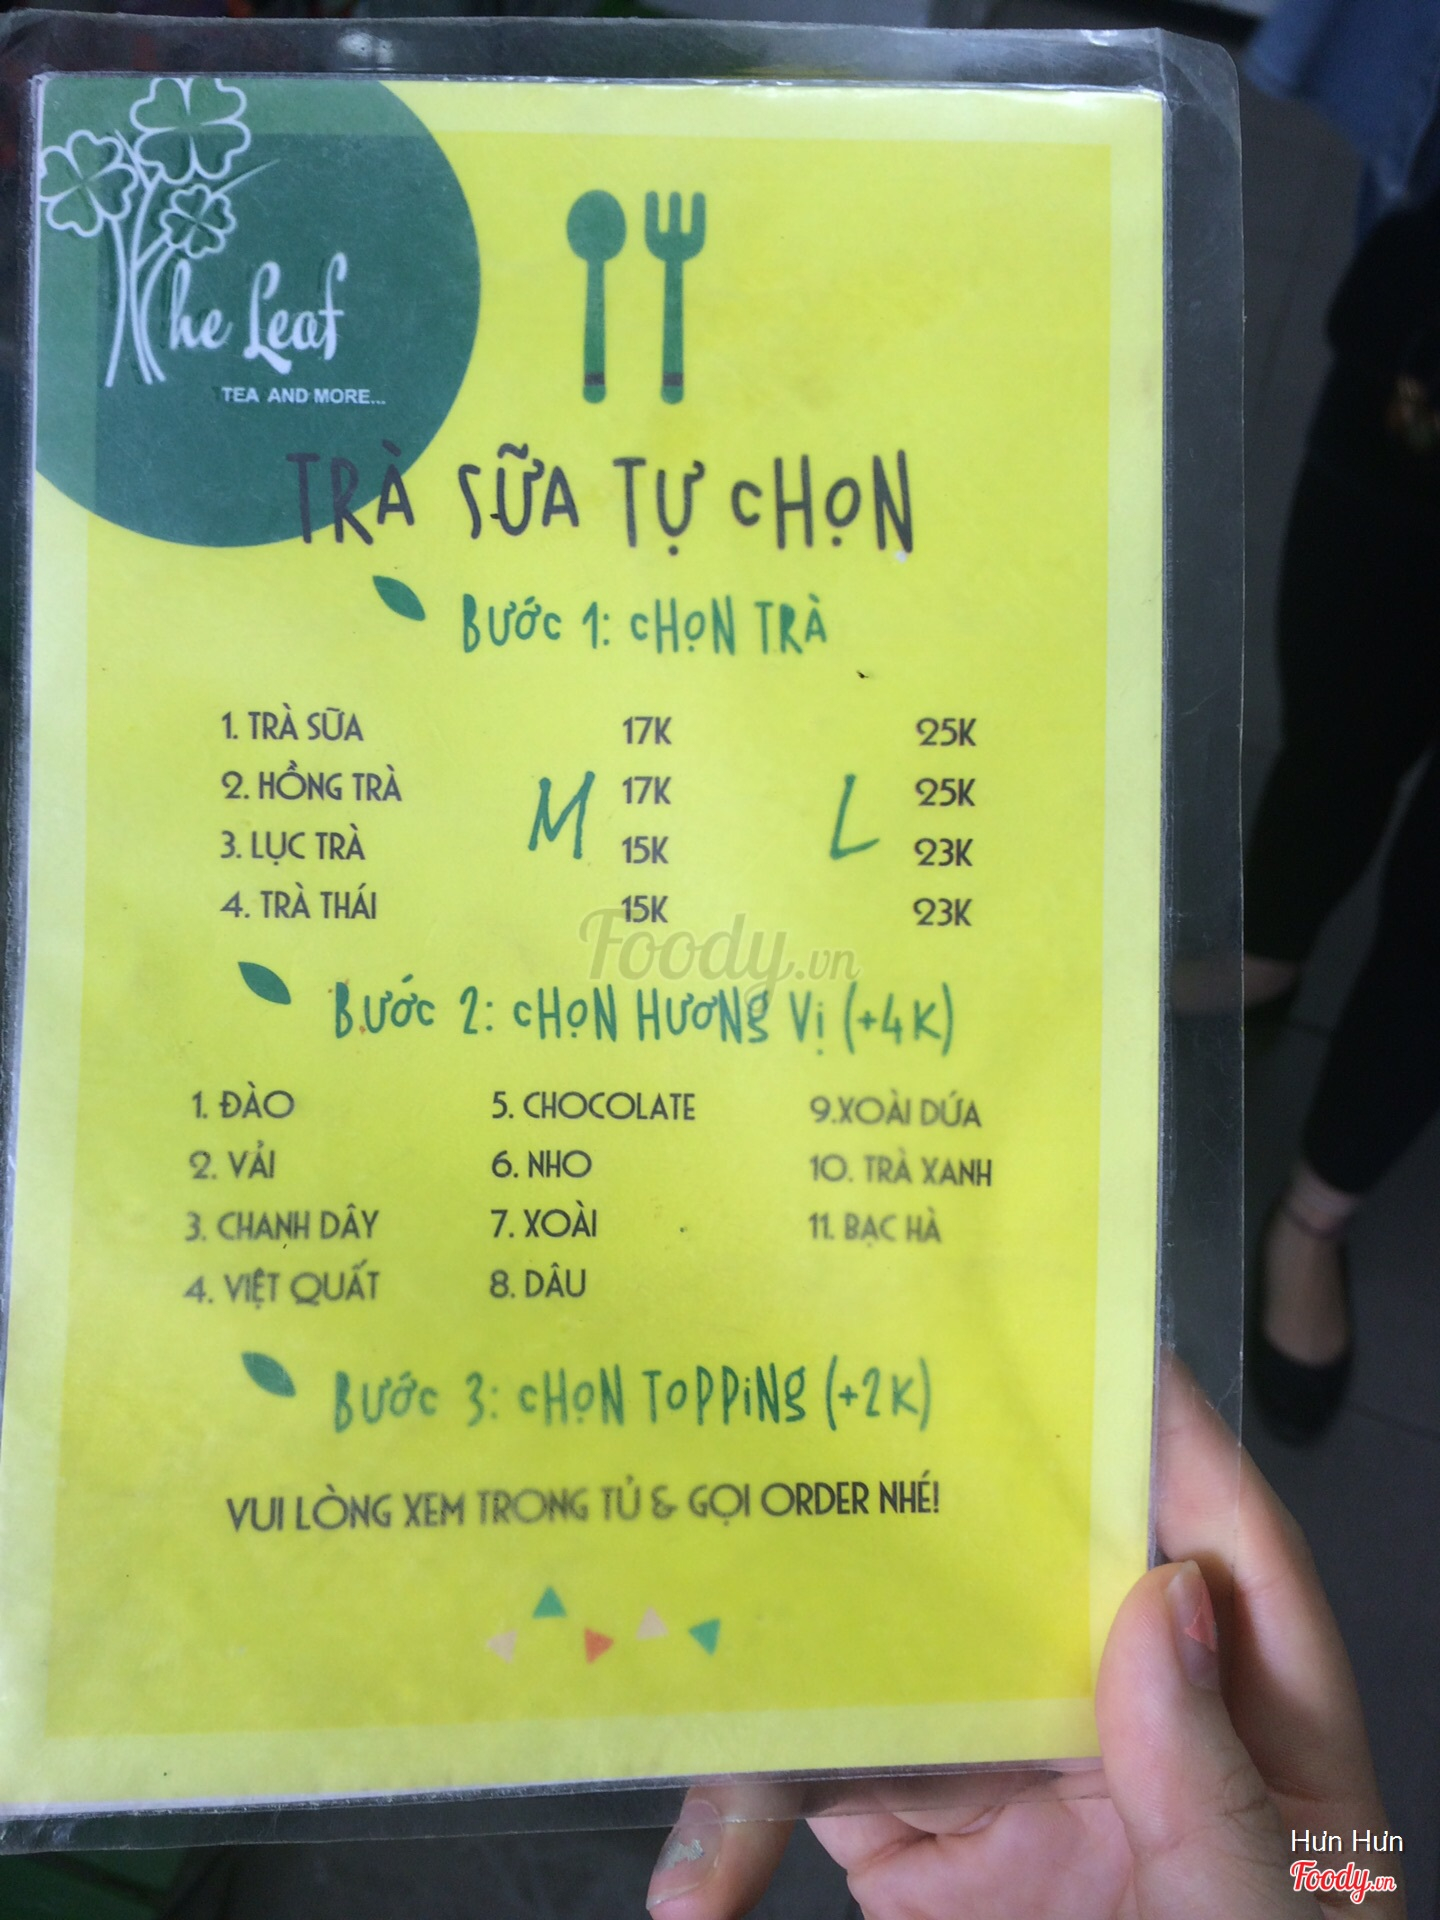 The Leaf
TEA AND MORE...
TRÀ SỮA TỰ CHỌN
BƯỚC 1: CHỌN TRÀ
1. TRÀ SỮA 17K 25K
2. HỒNG TRÀ M 17K L 25K
3. LỤC TRÀ 15K 23K
4. TRÀ THÁI 15K 23K
Foody.vn
BƯỚC 2: CHỌN HƯƠNG VỊ (+4K)
1. ĐÀO 5. CHOCOLATE 9.XOÀI DỨA
2. VẢI 6. NHO 10. TRÀ XANH
3. CHANH DÂY 7. XOÀI 11. BẠC HÀ
4. VIỆT QUẤT 8. DÂU
BƯỚC 3: CHỌN TOPPING (+2K)
VUI LÒNG XEM TRONG TỦ & GỌI ORDER NHÉ!
Hưn Hưn
Foody.vn